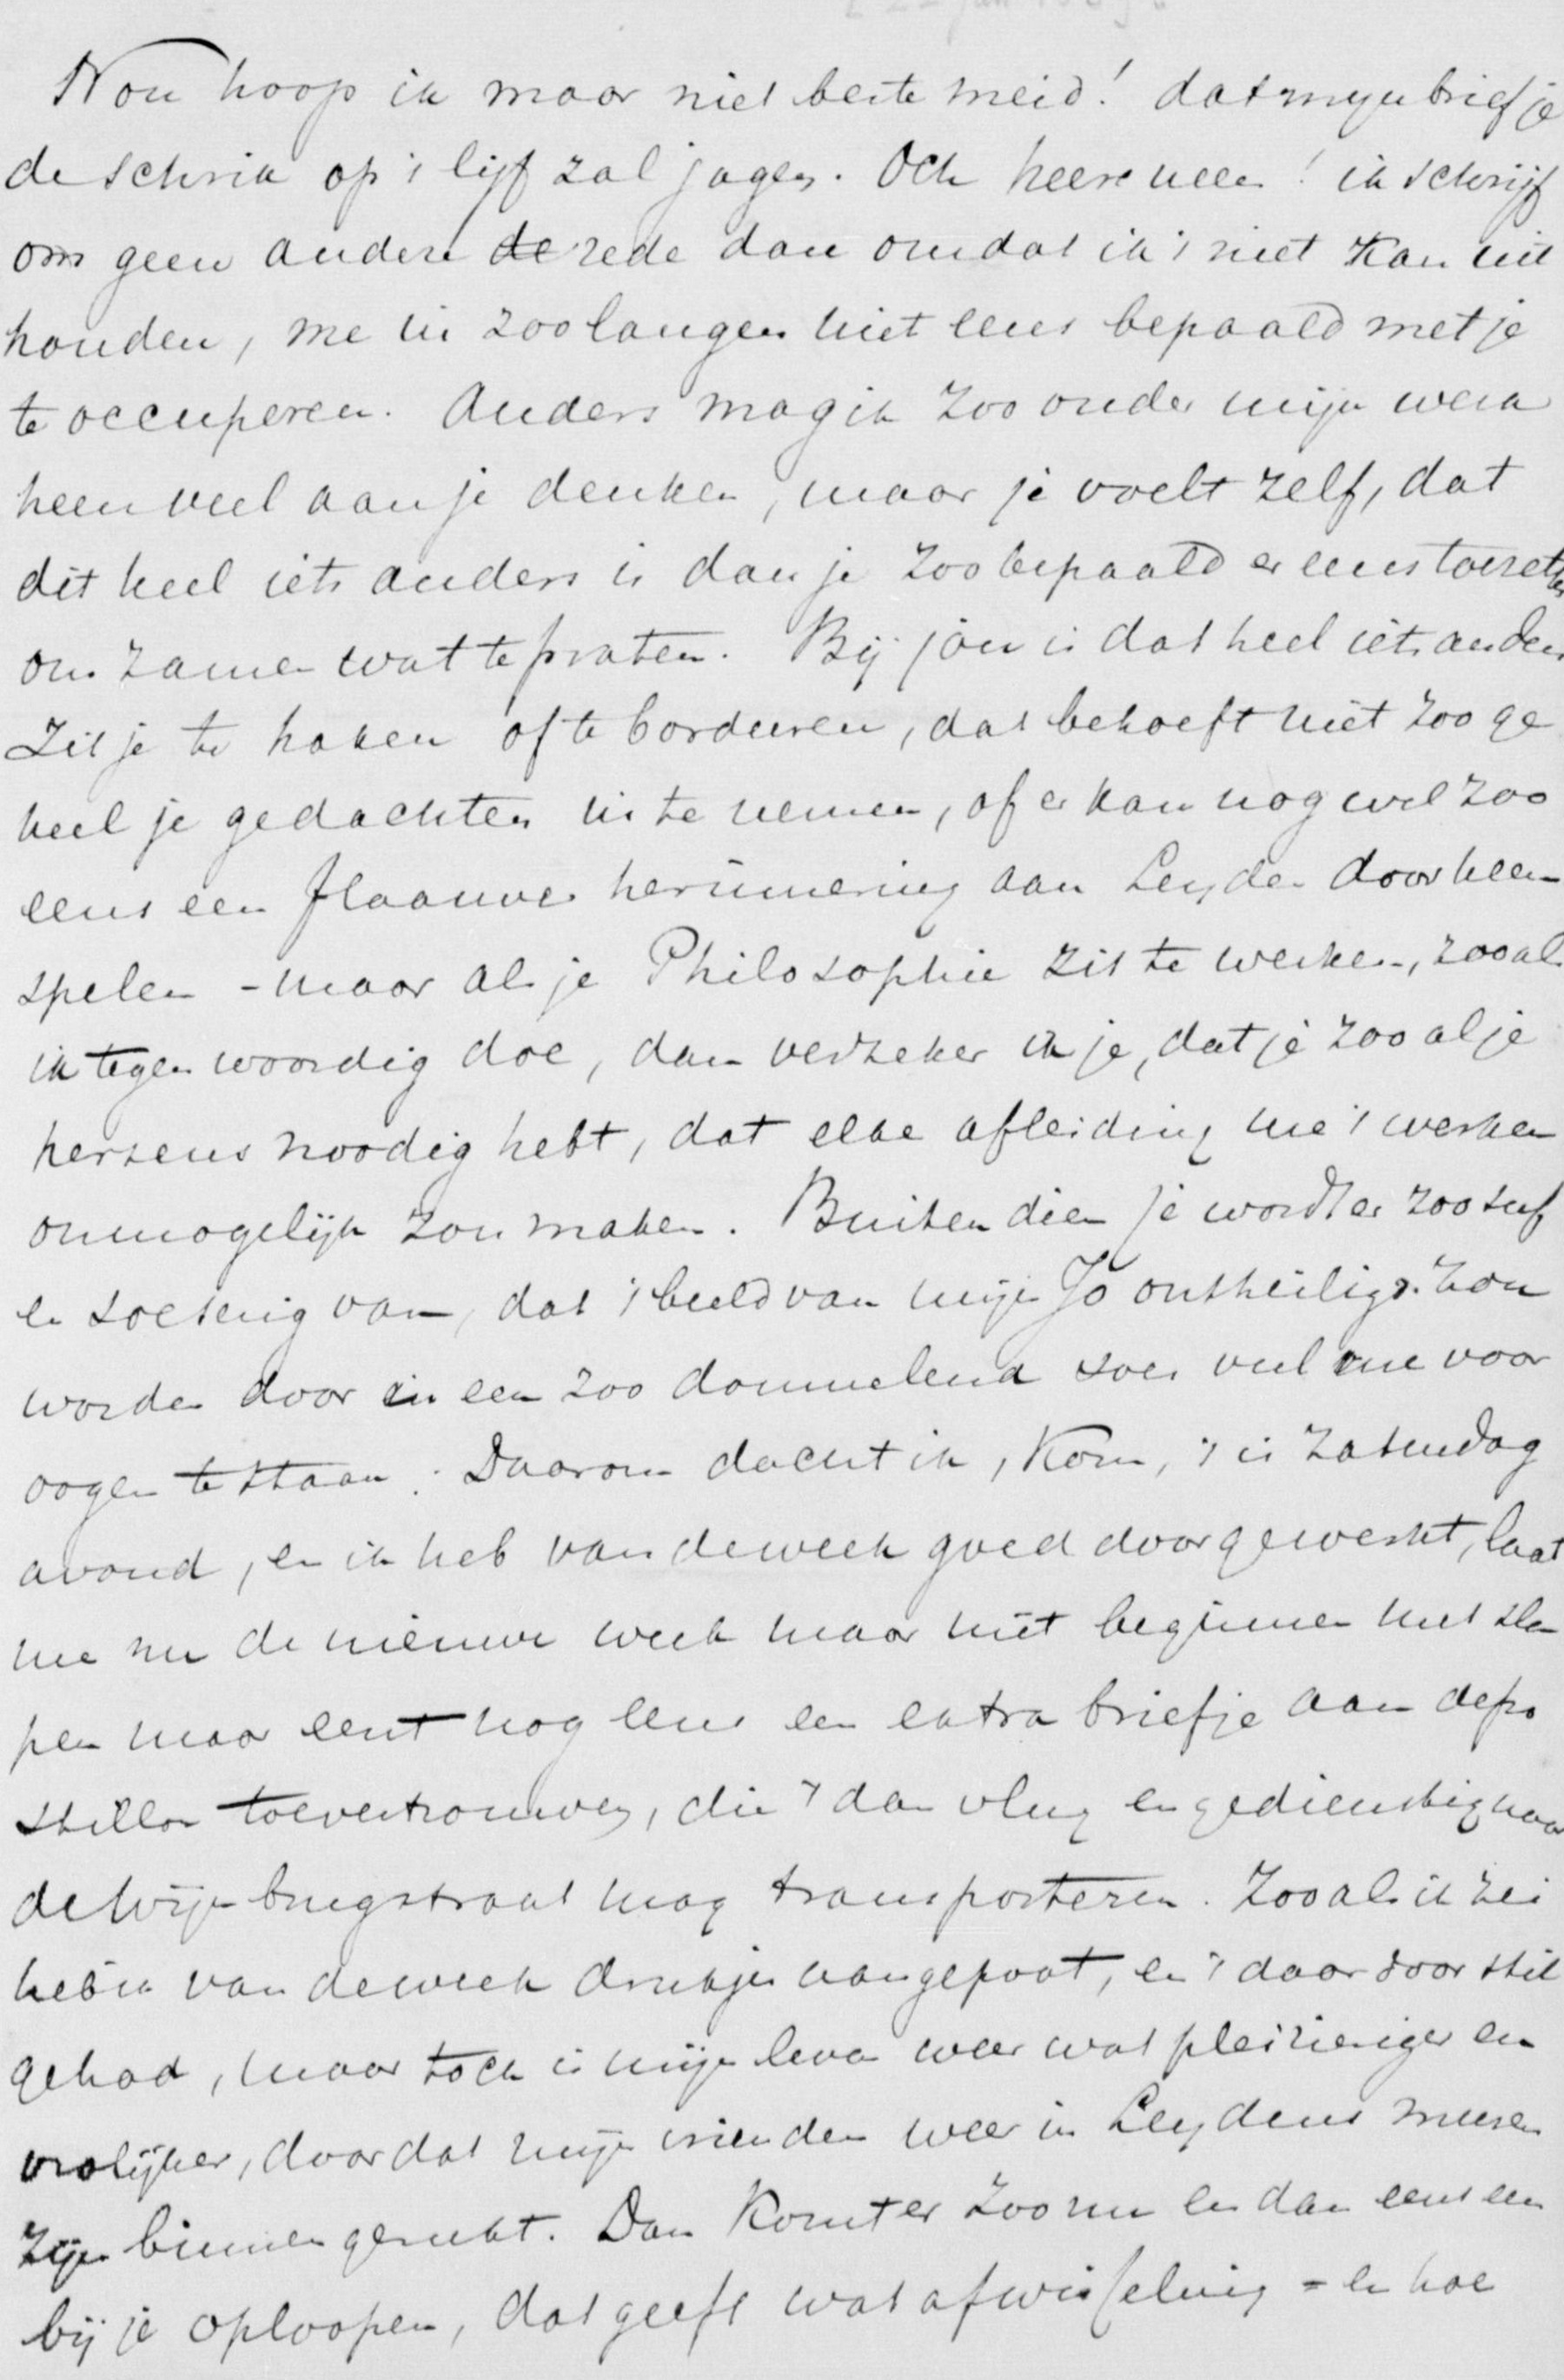 Nou hoop ik maar niet beste meid! dat myn briefje
de schrik op 't lijf zal jagen. Och heere neen! ik schrijf
om geen andere de rede dan omdat ik 't niet kan uit
houden, me in zoo langen niet eens bepaald met je
te occuperen. Anders mag ik zoo onder mijn werk
heen veel aan je denken, maar je voelt zelf, dat
dit heel iets anders is dan je zoo bepaald er eens toe zetten
om zamen wat te praten. Bij jou is dat heel iets anders
Zit je te haken of te borduren, dat behoeft niet zoo ge
heel je gedachten in te nemen, of er kan nog wel zoo
eens een flaauwe herinnering aan Leyden doorheen
spelen - maar als je Philosophie zit te werken, zooals
ik tegenwoordig doe, dan verzeker ik je, dat je zoo al je
hersens noodig hebt, dat elke afleiding me 't werken
onmogelijk zou maken. Buitendien je wordt er zoo suf
en soeserig van, dat 't beeld van mijn Jo ontheiligd zou
worden door in een zoo dommelend soes veel me voor
oogen te staan. Daarom dacht ik, Kom, 't is Zaturdag
avond, en ik heb van de week goed doorgewerkt, laat
me nu de nieuwe week maar niet beginnen met sla
pen maar eerst nog eens een extra briefje aan de po
stillon toevertrouwen, die 't dan vlug en gedienstig naar
de Wijnbrugstraat mag transporteren. Zooals ik zei
heb ik van de week drukjes aangepoot, en 't daardoor stil
gehad, maar toch is mijn leven weer wat pleizieriger en
vrolijker, doordat mijn vrienden weer in Leydens muren
zijn binnen gerukt. Dan komt er zoo nu en dan eens een
bij je oploopen, dat geeft wat afwisseling = en hoe